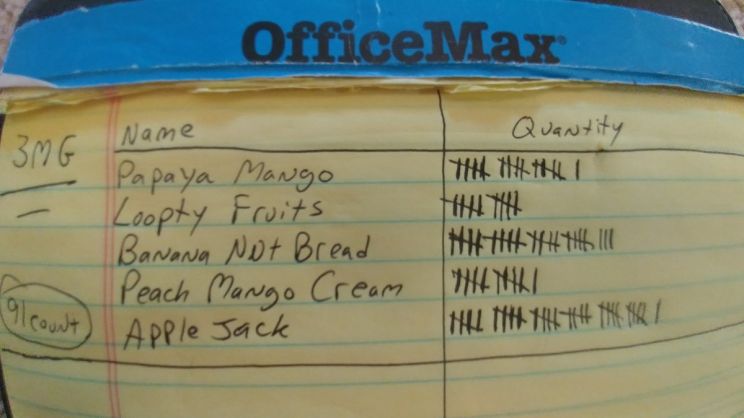 OfficeMax
3MG Name Quantity
Papaya Mango 卌 卌 卌 I
Loopty Fruits 卌 卌
Banana NUt Bread 卌 卌 卌 卌 III
Peach Mango Cream 卌 卌 I
91 count Apple Jack 卌 卌 卌 卌 卌 卌 I